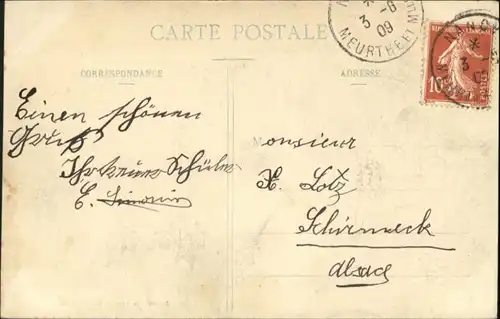 CARTE POSTALE
CORRESPONDANCE
ADRESSE
3 -6
09
MEURTHE ET M
10
Einen schönen
Gruß
Ihr treuer Schüler
E.
Monsieur
X. Lotz
Schirmeck
Alsace